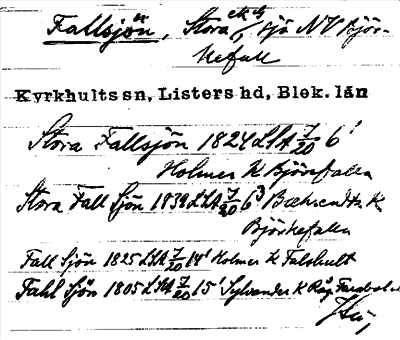 Fallsjön, Stora etc, sjö NV Björ-
kefall
Kyrkhults sn, Listers hd, Blek. län
Stora Fallsjön 1824 LSA 7/20 6'
Holmer K Björkefalla
Stora Fall Sjön 1839 LSA 7/20 6³ Bæhrendtz K
Björkefalla
Fall Sjön 1825 LSA 7/20 14' Holmer K Falshult
Fahl Sjön 1805 LSA 7/20 15' Sylvander K Råg